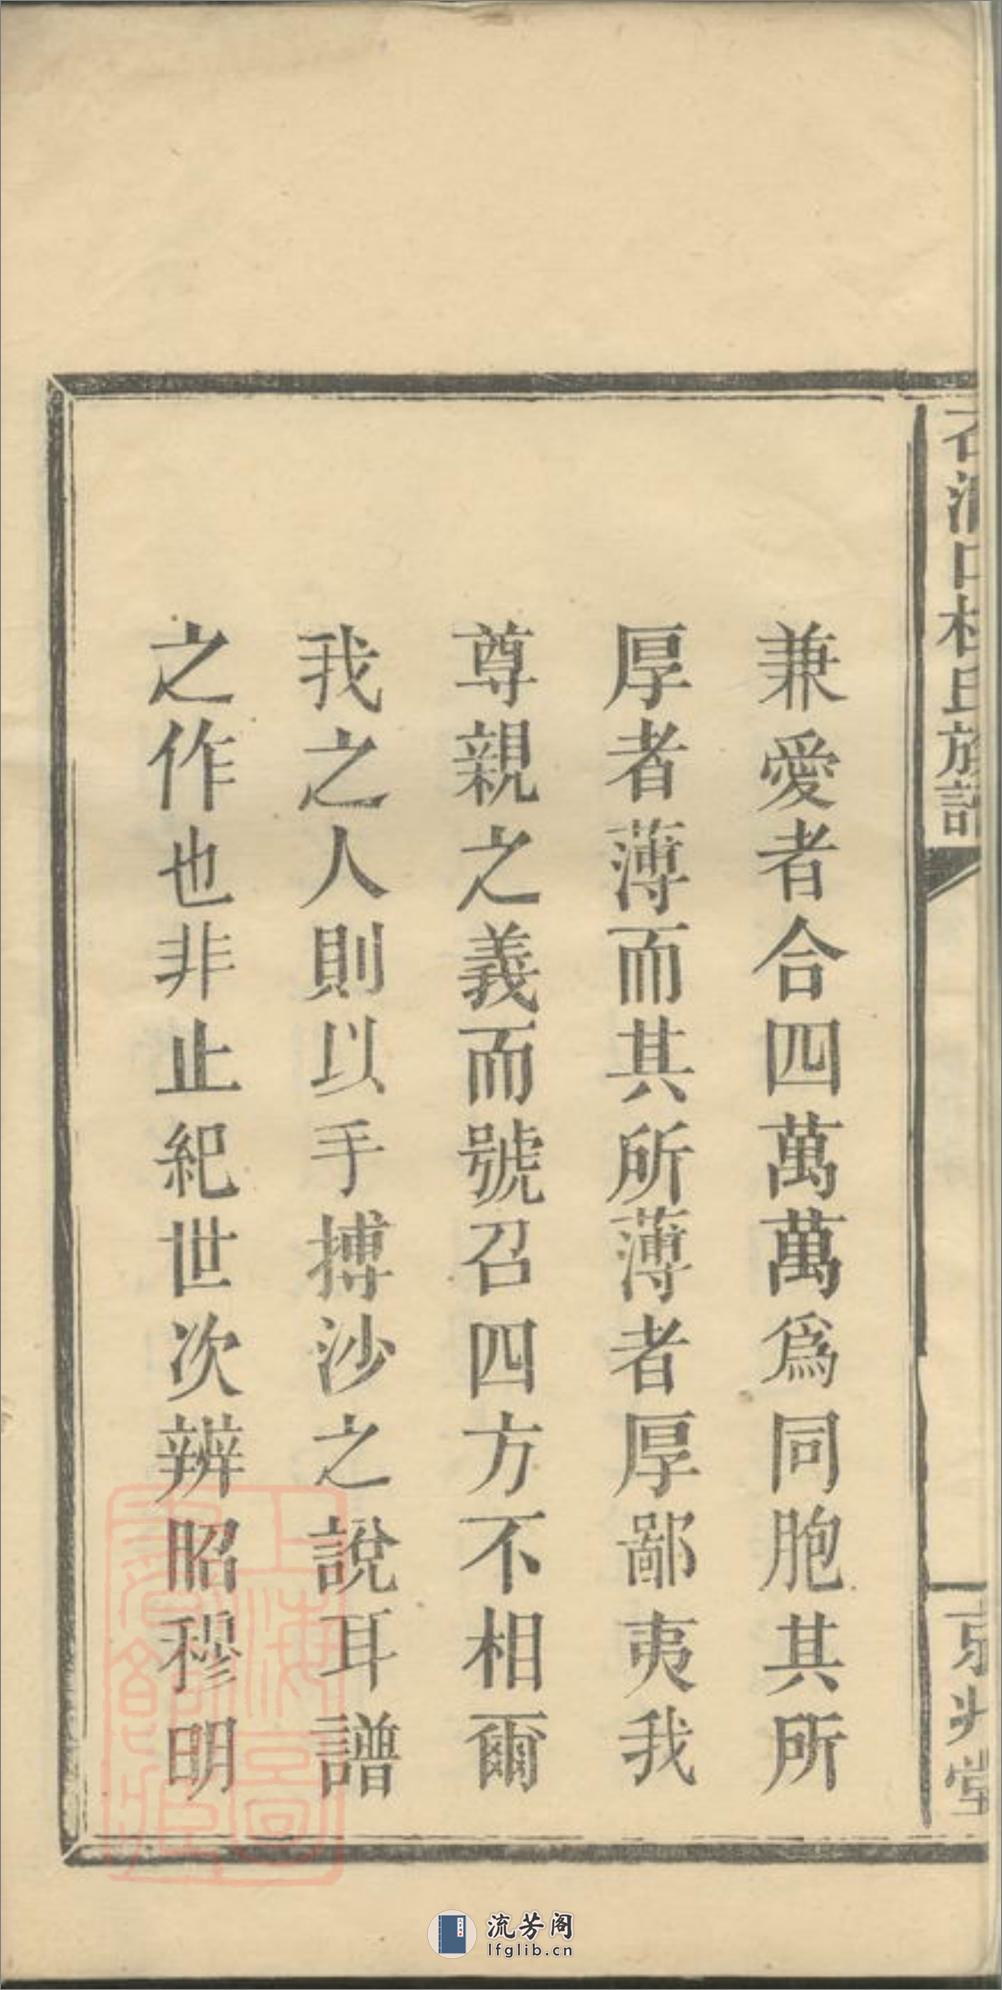 石灣口杜氏族譜
京兆堂
兼愛者合四萬萬爲同胞其所
厚者薄而其所薄者厚鄙夷我
尊親之義而號召四方不相爾
我之人則以手摶沙之說耳譜
之作也非止紀世次辨昭穆明
上海圖書館藏
流芳阁
lfglib.cn